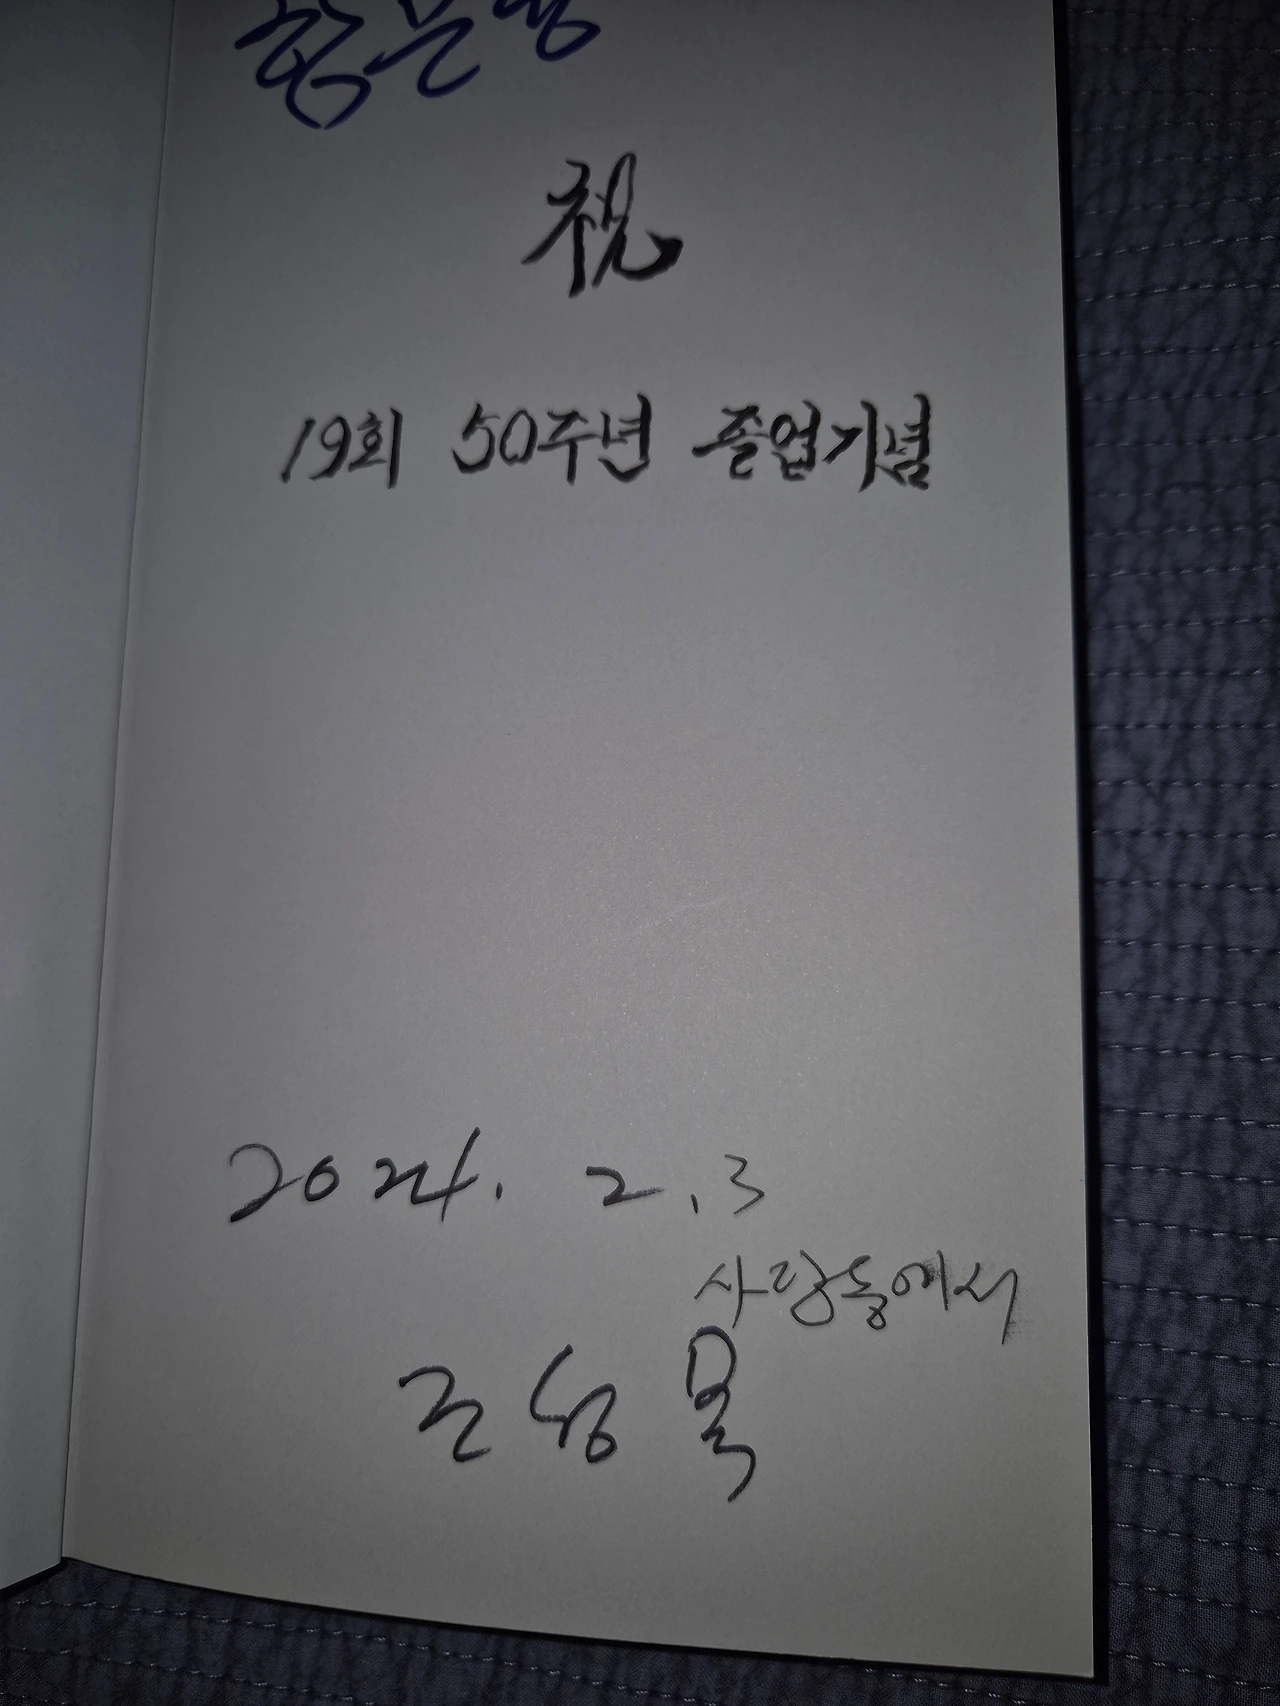 祝
19회 50주년 졸업기념
2024. 2.3
사랑동에서
조성목